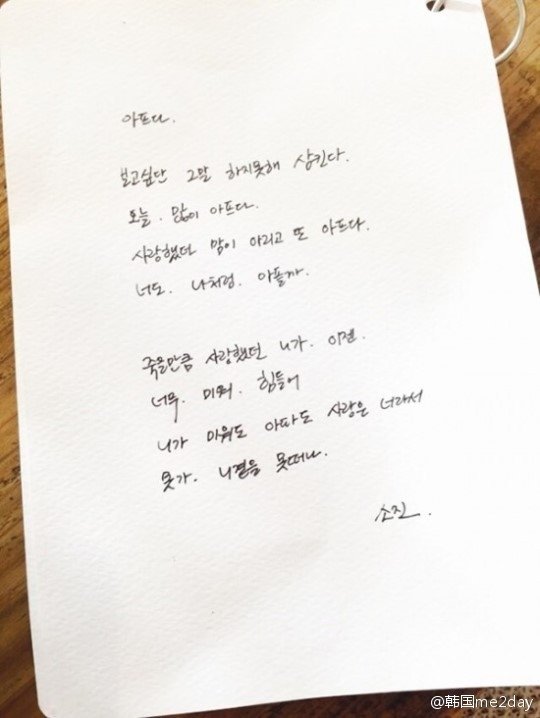 아프다.
보고싶단 그말 하지못해 삼킨다.
오늘. 많이 아프다.
사랑했던 맘이 아리고 또 아프다.
너도. 나처럼. 아플까.
죽을만큼 사랑했던 니가. 이젠.
너무. 미워. 힘들어
니가 미워도 아파도 사랑은 너라서
못가. 니곁을 못떠나.
소진.
@韩国me2day